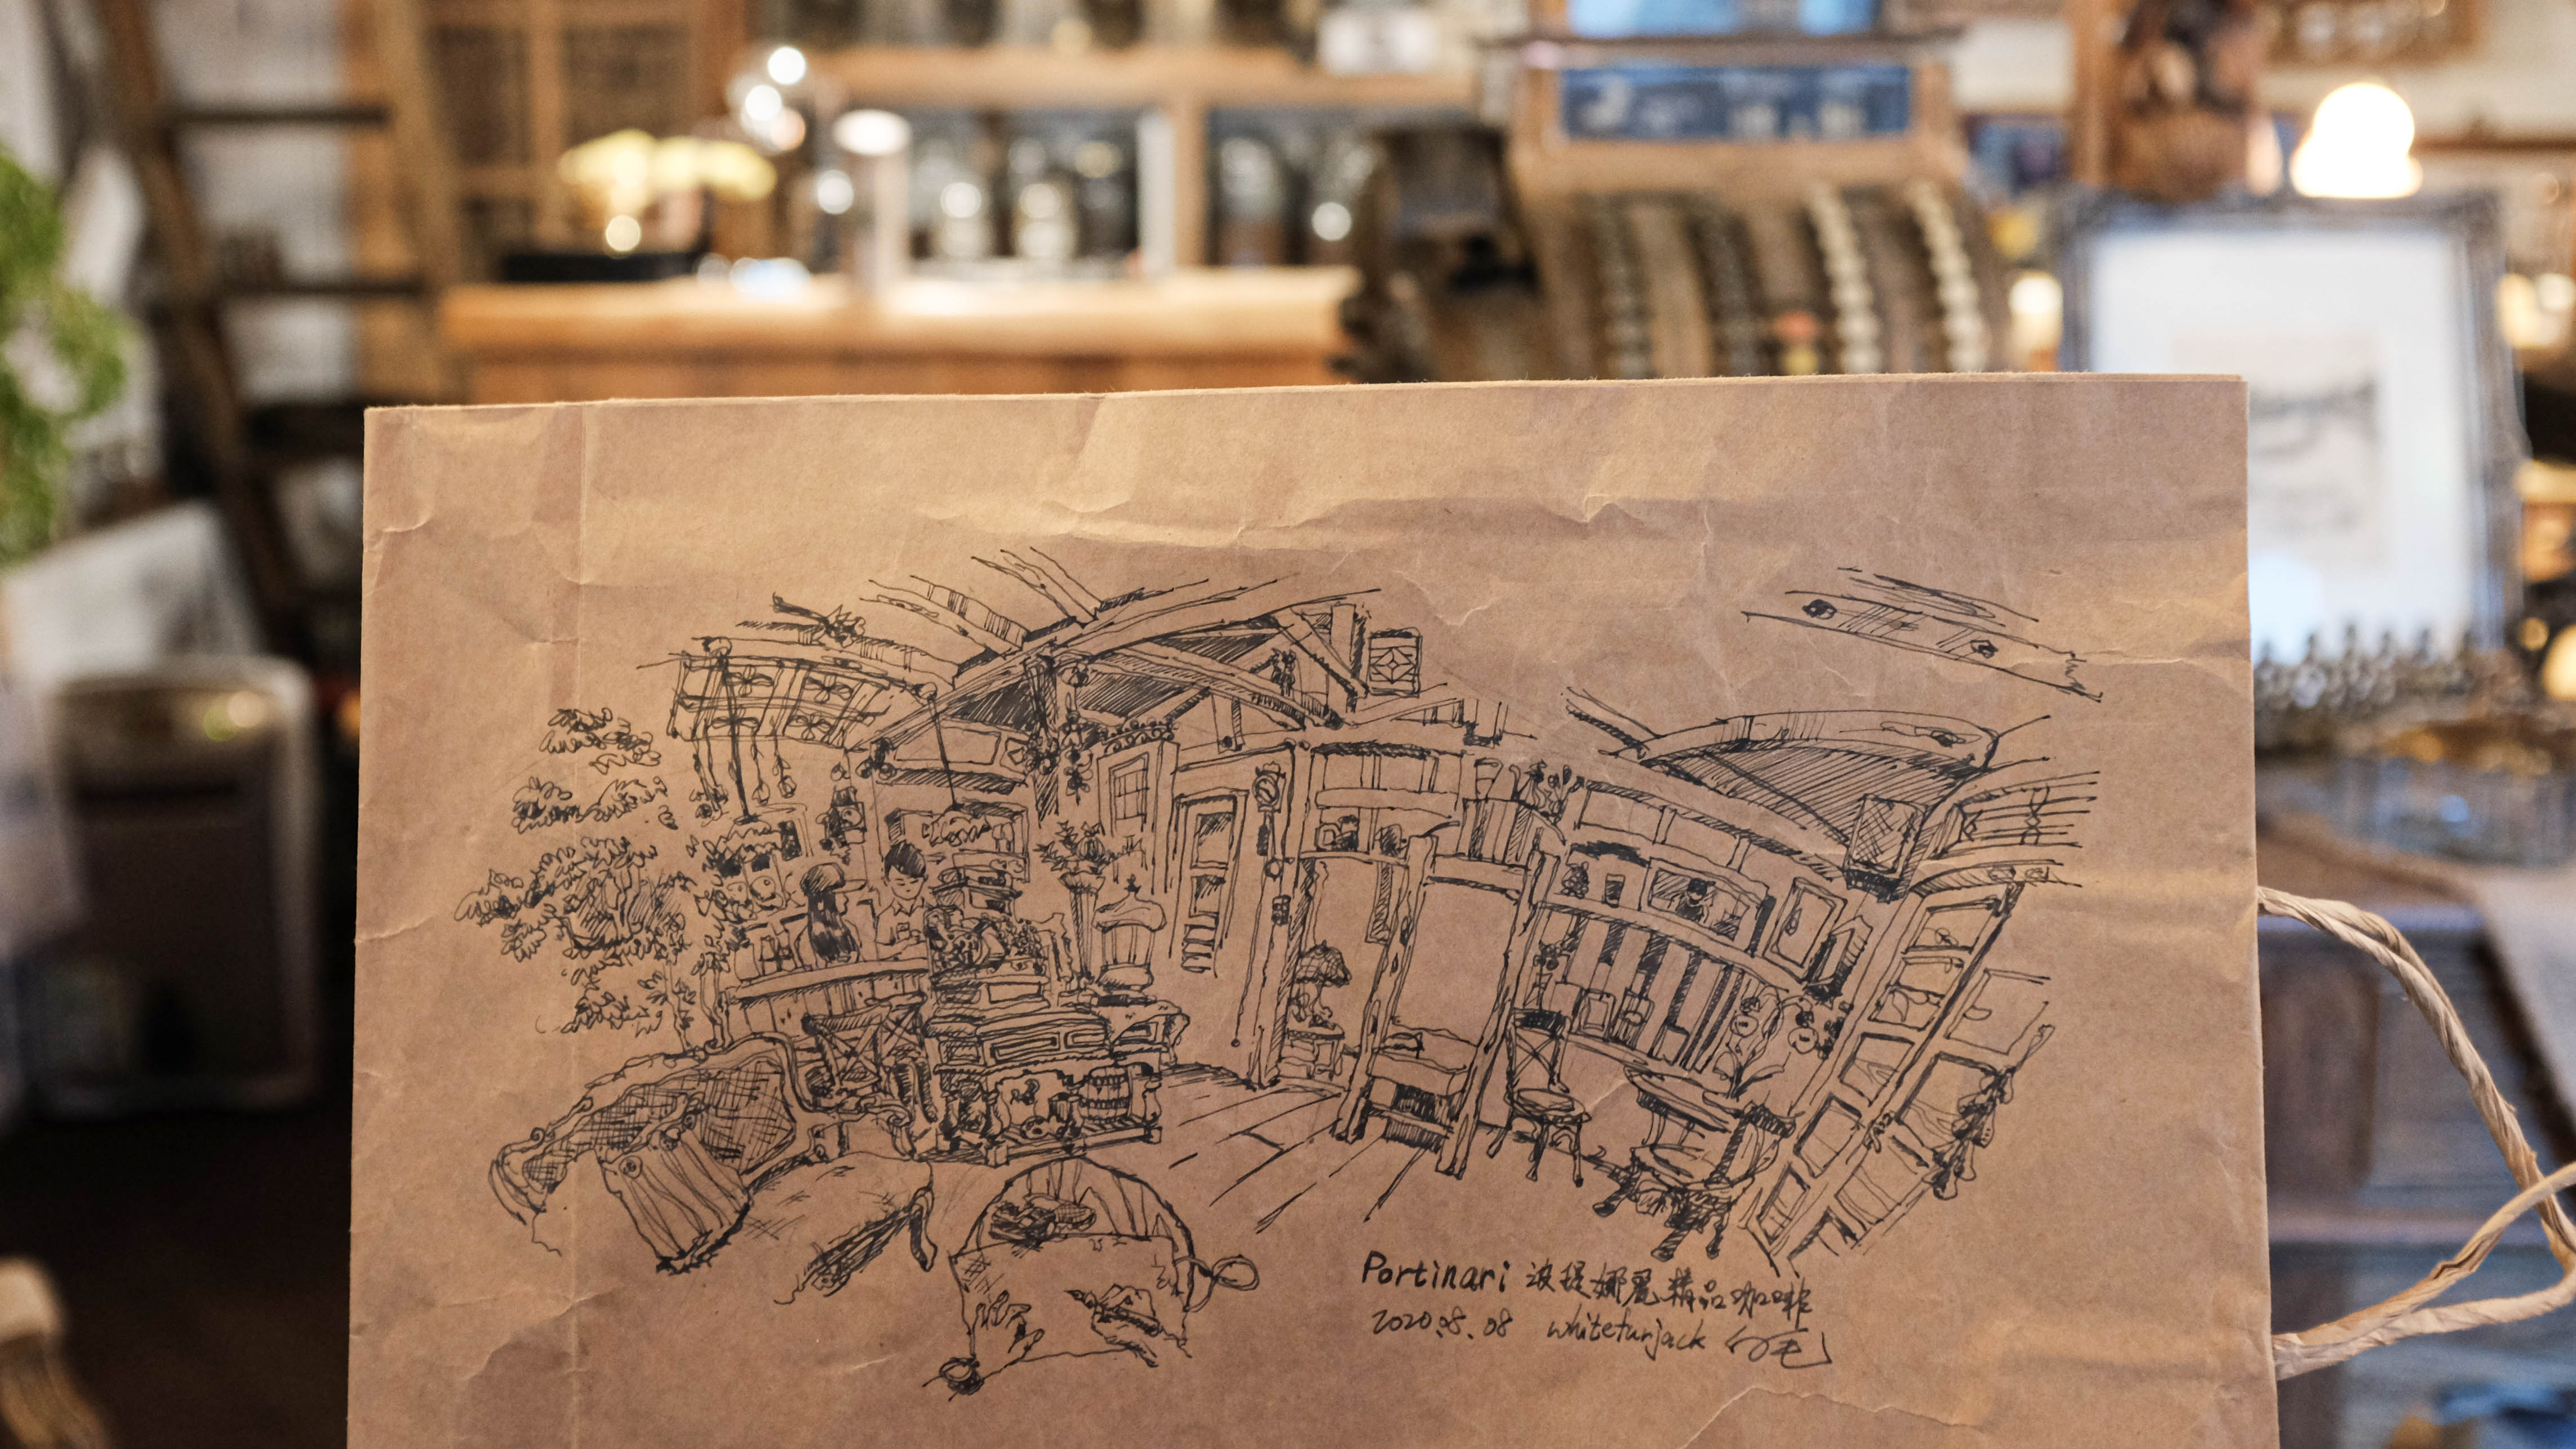 Portinari 波提娜麗精品咖啡
2020.8.08 whitefurjack 白毛